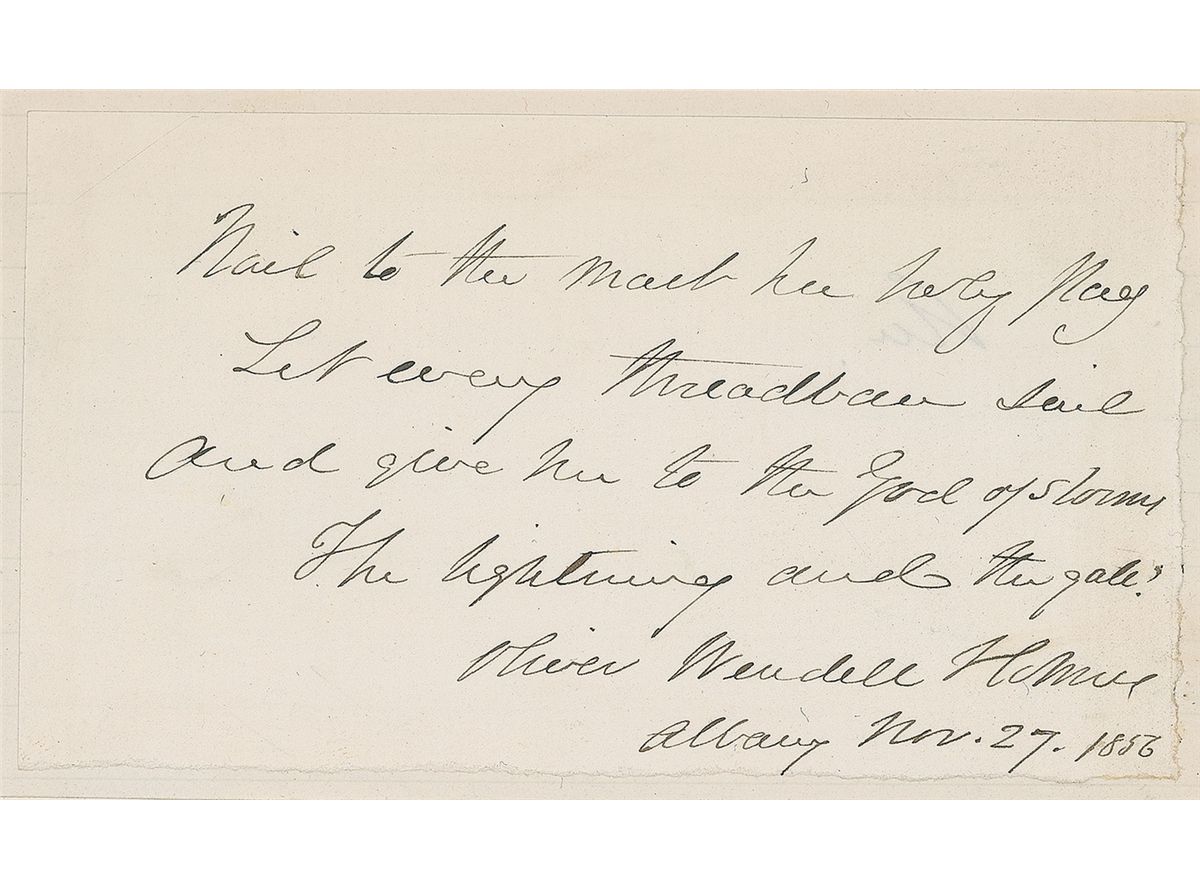 Nail to the mast her holy flag
Let every threadbare sail
And give her to the God of storms
The lightning and the gale!
Oliver Wendell Holmes
Albany Nov. 27. 1856